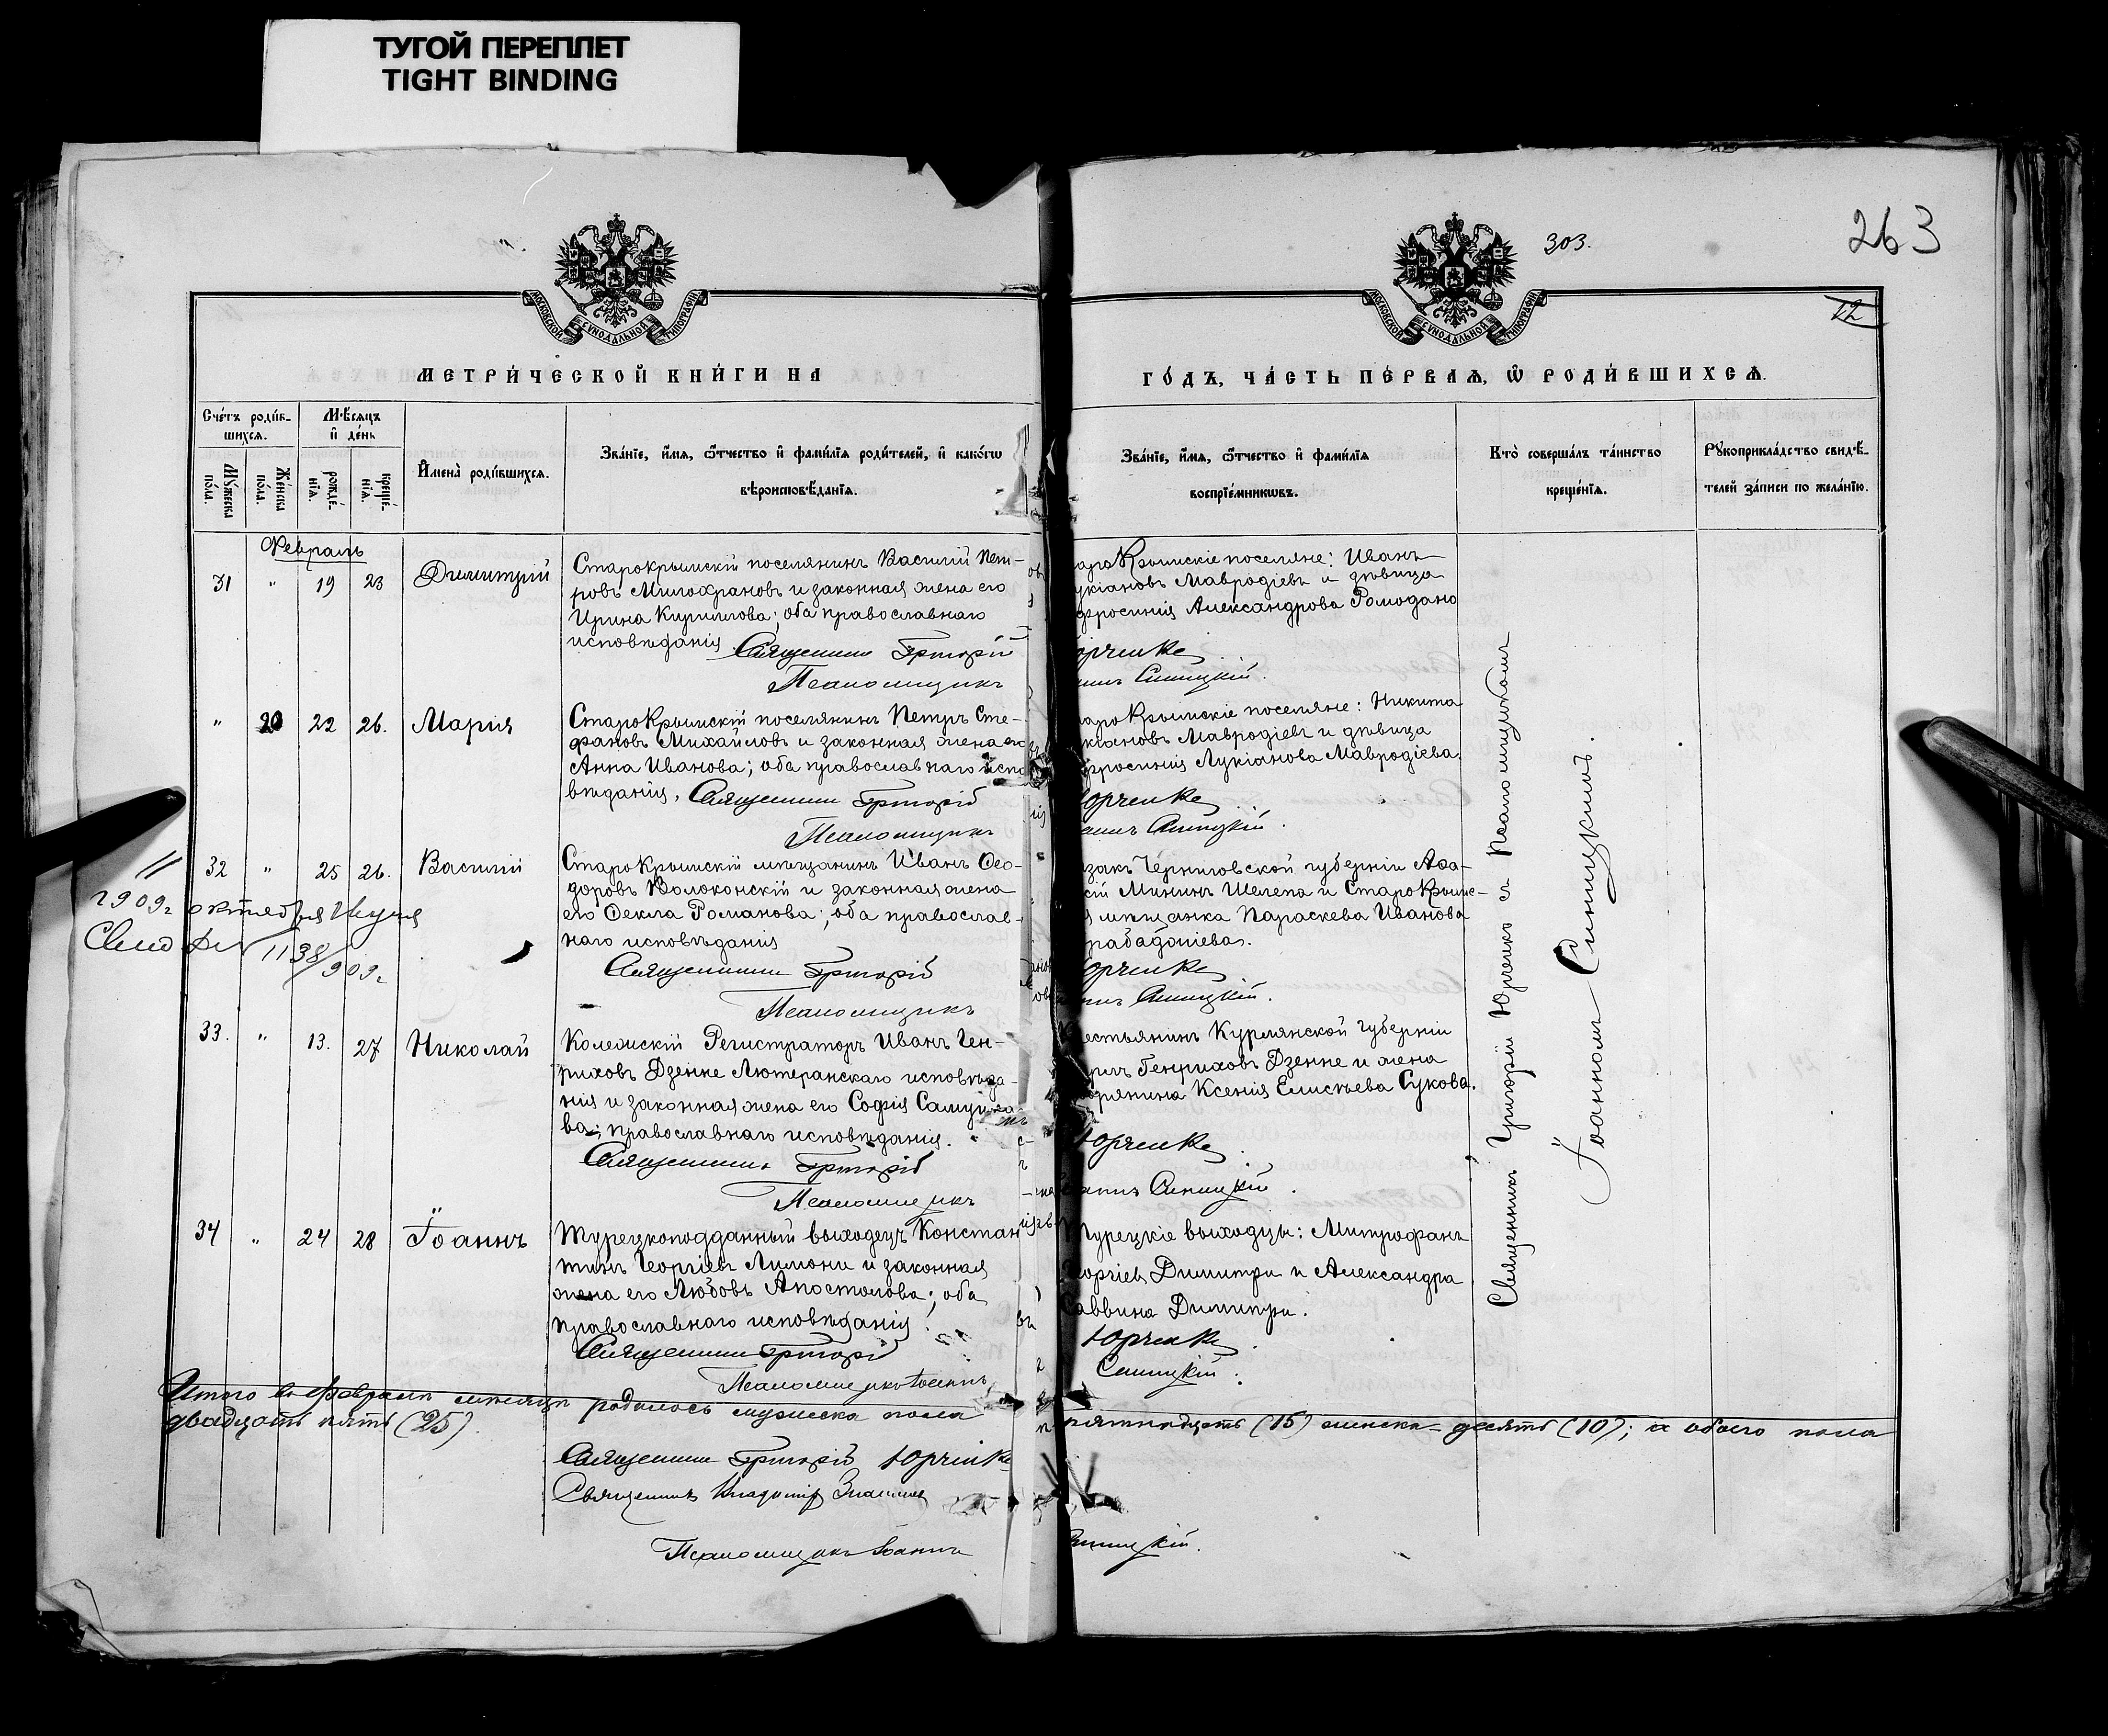 ТУГОЙ ПЕРЕПЛЕТ
TIGHT BINDING
303.
263
12
МОСКОВСКОЙ СУНОДАЛЬНОЙ ТИПОГРАФІИ
МОСКОВСКОЙ СУНОДАЛЬНОЙ ТИПОГРАФІИ
МЕТРИ́ЧЕСКОЙ КНИ́ГИ НА
ГО́ДЪ, ЧА́СТЬ ПЕ́РВАѦ, Ѡ҆ РОДИ́ВШИХСѦ.
Сче́тъ роди́в-
шихсѧ.
Мꙋ́жеска по́ла.
Же́нска по́ла.
Мѣ́сѧцъ
и҆ де́нь
рожде́-нїѧ.
креще́-нїѧ.
И҆мена̀ роди́вшихсѧ.
Зва́нїе, и҆́мѧ, ѻ҆́тчество и҆ фами́лїѧ роди́телей, и҆ како́гѡ
вѣроисповѣ́данїѧ.
Зва́нїе, и҆́мѧ, ѻ҆́тчество и҆ фами́лїѧ
воспрїе́мникѡвъ.
Кто̀ соверша́лъ та́инство
креще́нїѧ.
Рꙋкоприкла́дство свидѣ́-
телей за́писи по жела́нїю.
Февраль
31 " 19 23 Димитрій
Старокрымскій поселянинъ Василій Пет-
ровъ Милохрановъ и законная жена его
Ирина Кириллова; оба православнаго
исповѣданія. Священникъ Григорій
Псаломщикъ
Крымскіе поселяне: Иванъ
Мавродіевъ и дѣвица
Александрова Ромодано
Юрченко
Синицкій.
" 20 22 26. Марія
СтароКрымскій поселянинъ Петръ Сте-
фановъ Михайловъ и законная жена его
Анна Иванова; оба православнаго испо
вѣданія. Священникъ Григорій
Псаломщикъ
Крымскіе поселяне: Никита
Мавродіевъ и дѣвица
Лукіанова Мавродіева.
Юрченко
Синицкій.
32 " 25 26. Василій
СтароКрымскій мѣщанинъ Иванъ Ѳео-
доровъ Волоконскій и законная жена
его Ѳекла Романова; оба православ-
наго исповѣданія
Священникъ Григорій
Псаломщикъ
закъ Черниговской губерніи Аѳа-
сій Мининъ Шелепа и СтароКрымс-
я мѣщанка Параскева Иванова
Юрченко
Синицкій.
11
1909г октября
1138/909г
33. " 13. 27 Николай
Колежскій Регистраторъ Иванъ Ген-
риховъ Дзенне Лютеранскаго исповѣда-
нія и законная жена его Софія Самуйло
ва; православнаго исповѣданія.
Священникъ Григорій
Псаломщикъ
естьянинъ Курлянской губерніи
Генриховъ Дзенне и жена
орянина Ксенія Елисѣева Сукова.
Юрченко
Синицкій.
34 " 24 28 Іоаннъ
Турецкоподданный выходецъ Констан
тинъ Георгіевъ Лимони и законная
жена его Любовь Апостолова; оба
православнаго исповѣданія.
Священникъ Григорій
Псаломщикъ Іоаннъ
Турецкіе выходцы: Митрофанъ
оргіевъ Димитри и Александра
Саввина Димитри.
Юрченко
Синицкій.
Священникъ Григорій Юрченко съ Псаломщикомъ
Іоанномъ Синицкимъ.
Итого въ Февралѣ мѣсяцѣ родилось мужеска пола
пятнадцать (15) женска- десять (10); а обоего пола
двадцать пять (25).
Священникъ Григорій Юрченко
Священникъ Владиміръ
Псаломщикъ Іоаннъ
Синицкій.